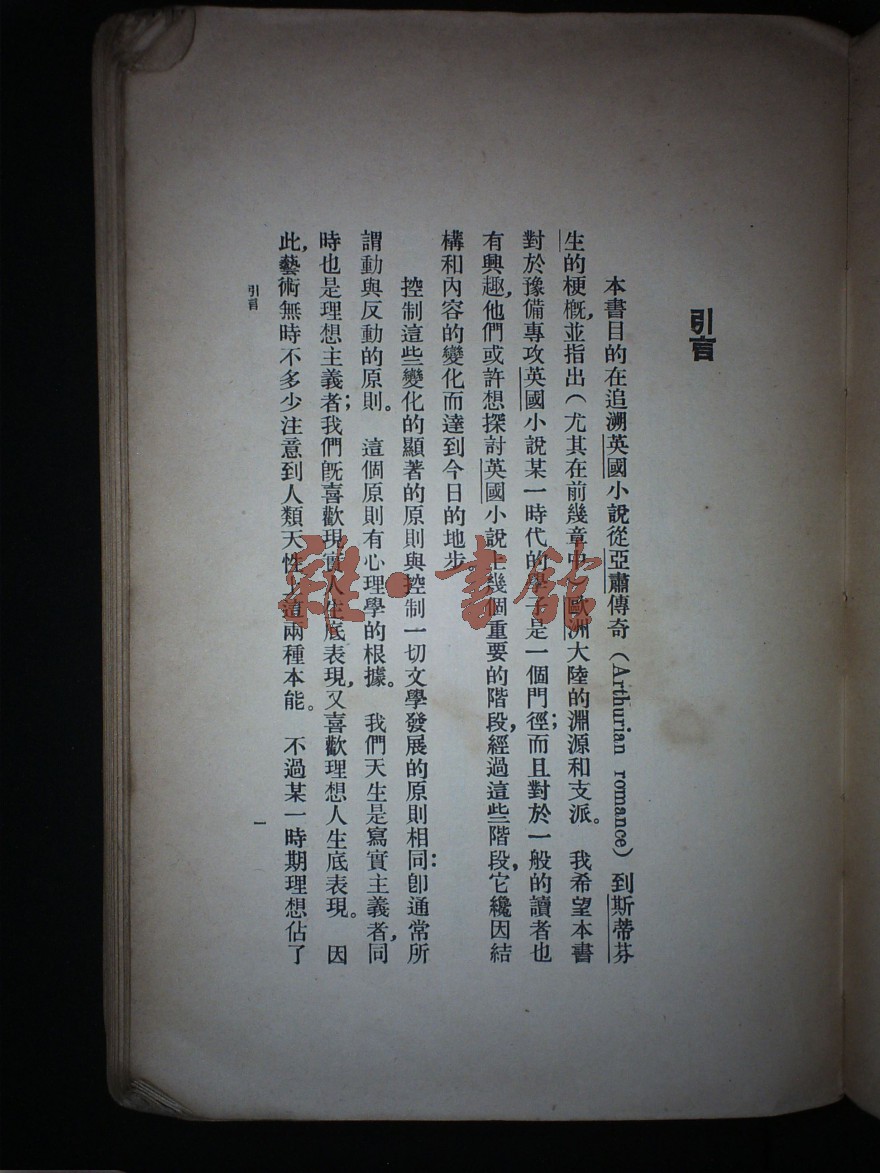 引言
本書目的在追溯英國小說從亞肅傳奇（Arthurian romance）到斯蒂芬
生的梗概，並指出（尤其在前幾章中）歐洲大陸的淵源和支派。我希望本書
對於豫備專攻英國小說某一時代的學子是一個門徑；而且對於一般的讀者也
有興趣，他們或許想探討英國小說上幾個重要的階段，經過這些階段，它纔因結
構和內容的變化而達到今日的地步。
控制這些變化的顯著的原則與控制一切文學發展的原則相同：卽通常所
謂動與反動的原則。這個原則有心理學的根據。我們天生是寫實主義者，同
時也是理想主義者；我們旣喜歡現實人生底表現，又喜歡理想人生底表現。因
此，藝術無時不多少注意到人類天性上這兩種本能。不過某一時期理想佔了
引言
一
雜·書館